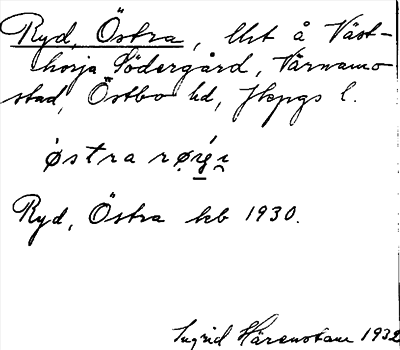 Ryd, Östra, lht å Väst-
horja Södergård, Värnamo
stad, Östbo hd, Jkpgs l.
Ryd, Östra kb 1930.
Ingrid Härenstam 1932